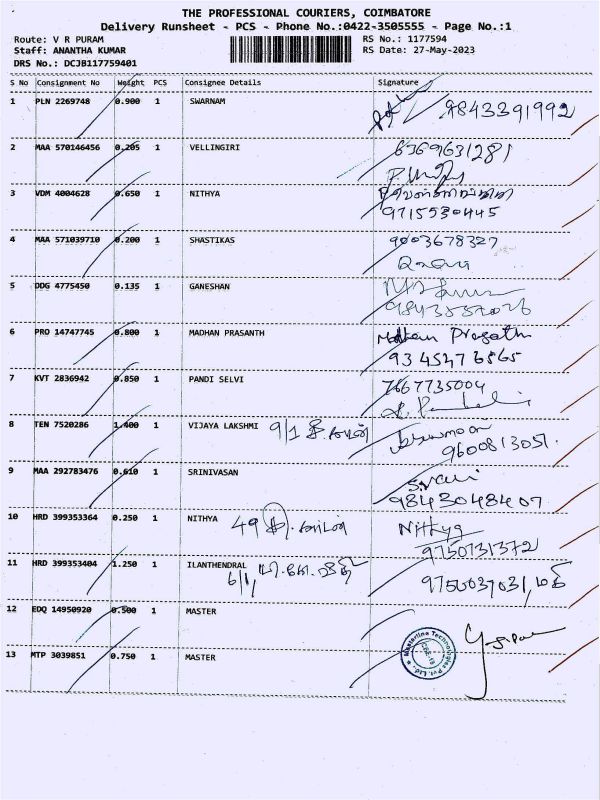 THE PROFESSIONAL COURIERS, COIMBATORE
Delivery Runsheet - PCS - Phone No.:0422-3505555 - Page No.:1
Route: V R PURAM RS No.: 1177594
Staff: ANANTHA KUMAR RS Date: 27-May-2023
DRS No.: DCJB117759401
S No Consignment No Weight PCS Consignee Details Signature
1 PLN 2269748 0.900 1 SWARNAM 9843391992
2 MAA 570146456 0.205 1 VELLINGIRI 6369631281
3 VDM 4004628 0.650 1 NITHYA
9715530445
4 MAA 571039710 0.200 1 SHASTIKAS 9003678327
5 DDG 4775450 0.135 1 GANESHAN
6 PRO 14747745 0.800 1 MADHAN PRASANTH Prasath
7 KVT 2836942 0.850 1 PANDI SELVI 7667735004
8 TEN 7520286 1.400 1 VIJAYA LAKSHMI 9/1
9600813051.
9 MAA 292783476 0.610 1 SRINIVASAN
9843048407
10 HRD 399353364 0.250 1 NITHYA 49 Nithya
9750731372
11 HRD 399353404 1.250 1 ILANTHENDRAL
6/1,
12 EDQ 14950920 0.500 1 MASTER
Masterline Technologies Pvt. Ltd.
13 MTP 3039851 0.750 1 MASTER